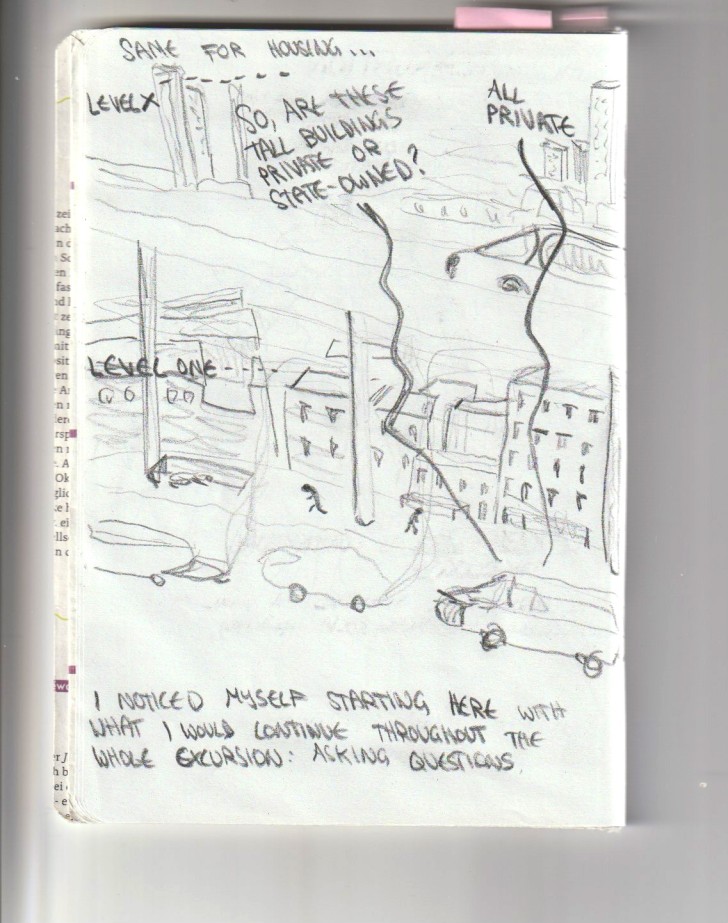 SAME FOR HOUSING...
LEVEL X
SO, ARE THESE
TALL BUILDINGS
PRIVATE OR
STATE-OWNED?
ALL
PRIVATE
LEVEL ONE
I NOTICED MYSELF STARTING HERE WITH
WHAT I WOULD CONTINUE THROUGHOUT THE
WHOLE EXCURSION: ASKING QUESTIONS.